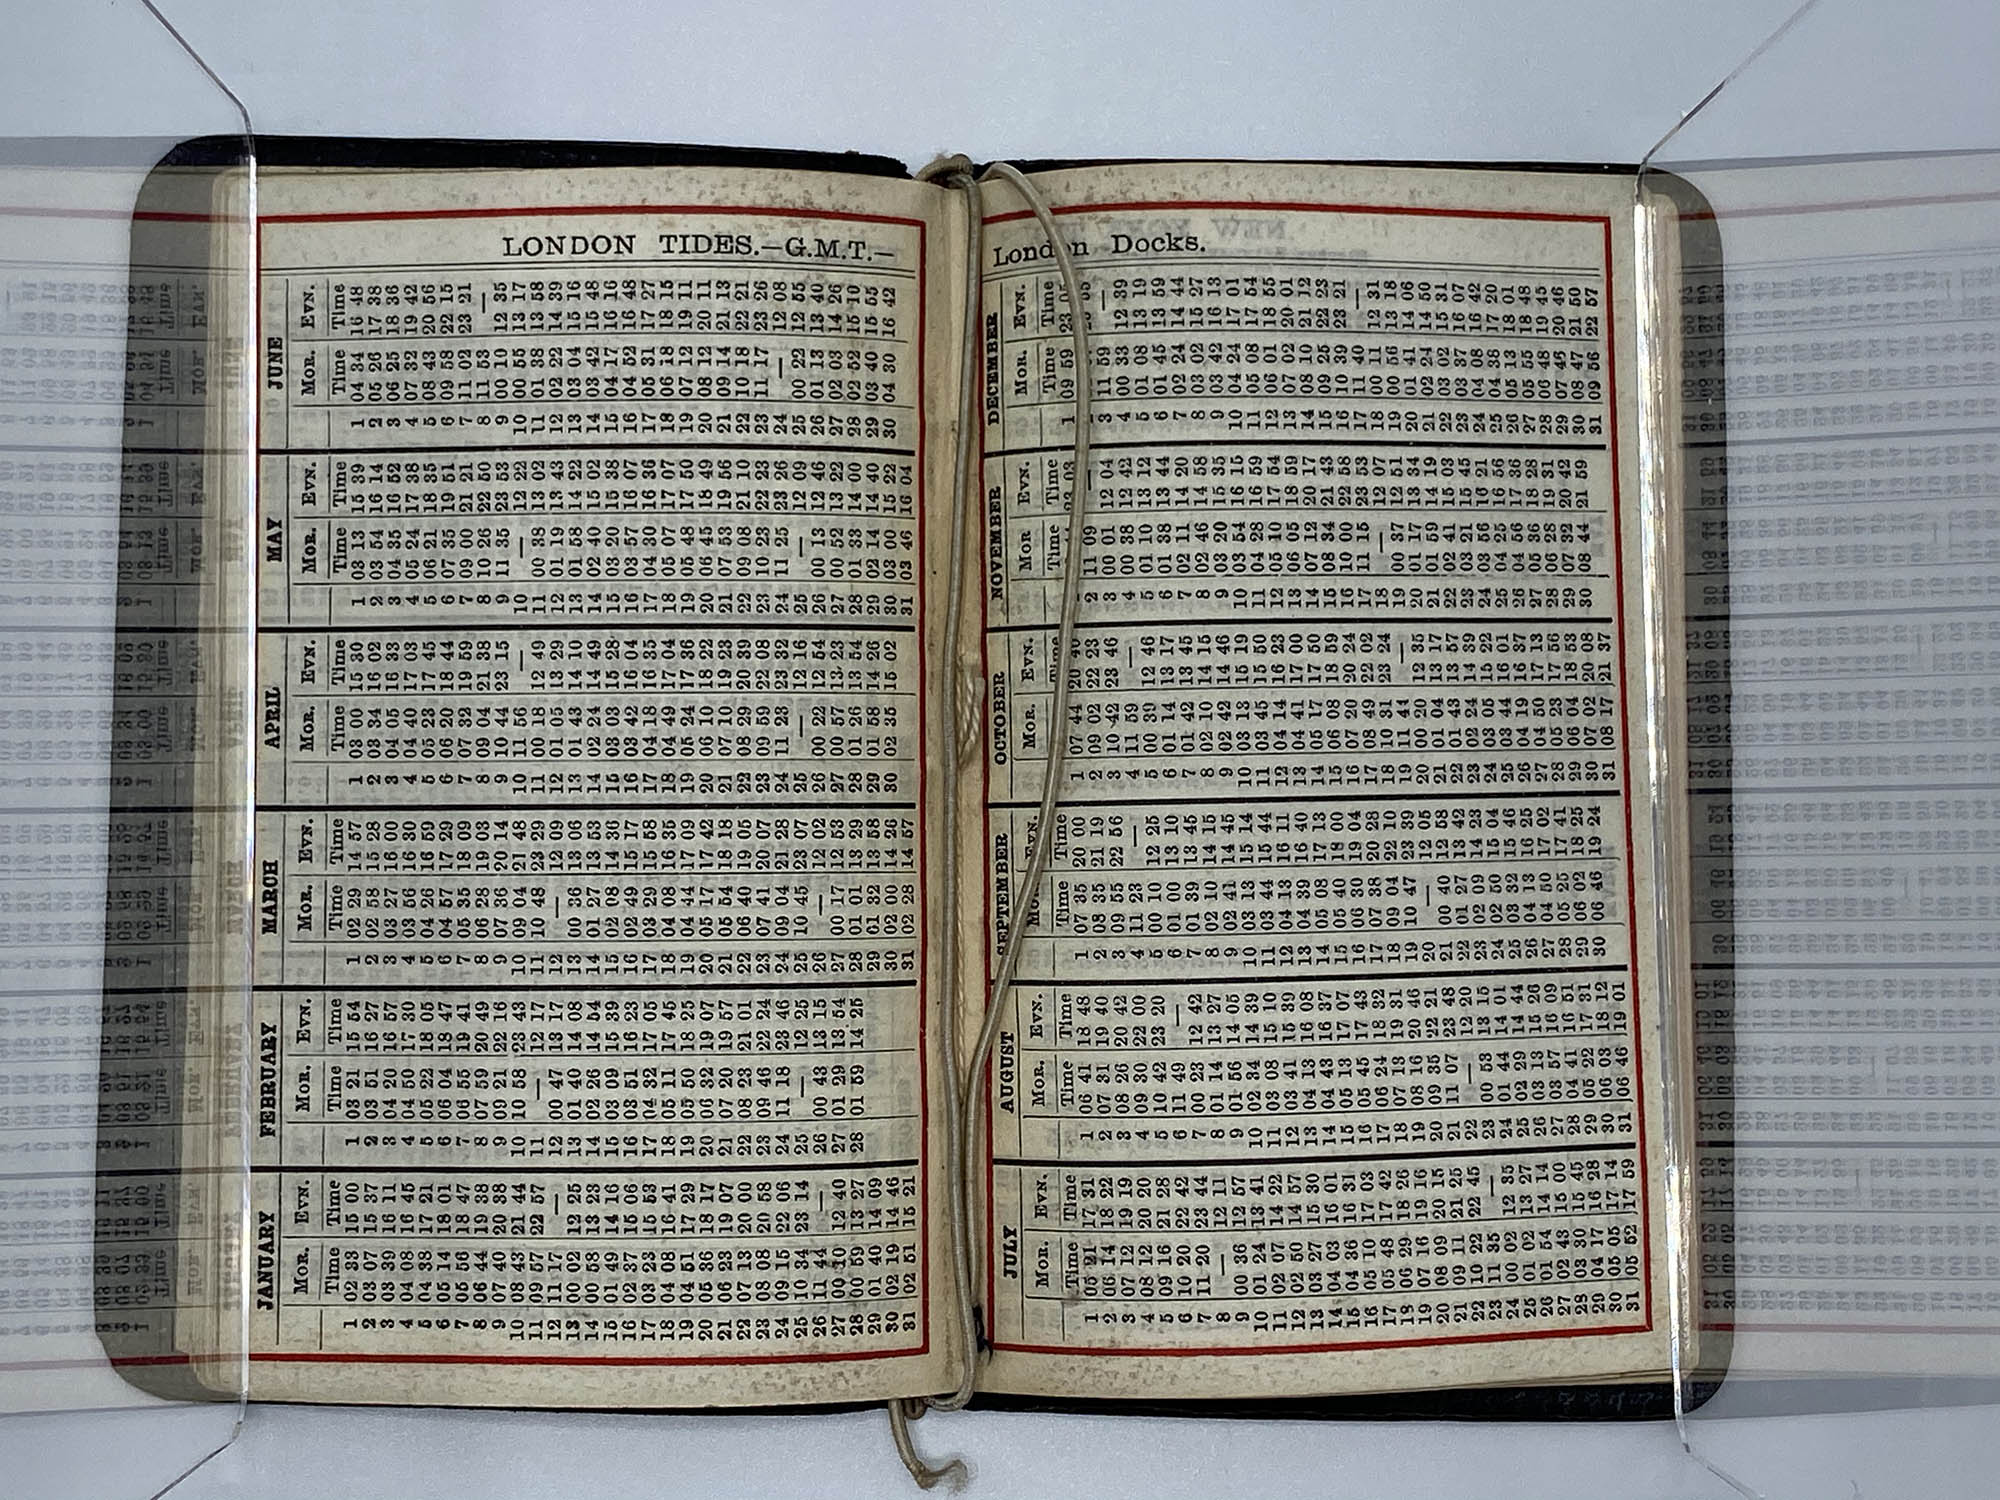 LONDON TIDES.—G.M.T.—
JANUARY
MOR. EVN.
Time Time
1 02 33 15 00
2 03 07 15 37
3 03 39 16 11
4 04 08 16 45
5 04 38 17 21
6 05 14 18 01
7 05 56 18 47
8 06 44 19 38
9 07 40 20 38
10 08 43 21 44
11 09 57 22 57
12 11 17 —
13 00 02 12 25
14 00 58 13 23
15 01 49 14 16
16 02 37 15 06
17 03 23 15 53
18 04 08 16 41
19 04 51 17 29
20 05 36 18 17
21 06 23 19 07
22 07 13 20 00
23 08 08 20 58
24 09 15 22 06
25 10 34 23 14
26 11 44 —
27 00 10 12 40
28 00 59 13 27
29 01 40 14 09
30 02 19 14 46
31 02 51 15 21
FEBRUARY
MOR. EVN.
Time Time
1 03 21 15 54
2 03 51 16 27
3 04 20 16 57
4 04 50 17 30
5 05 22 18 05
6 06 04 18 47
7 06 55 19 41
8 07 59 20 49
9 09 21 22 16
10 10 58 23 43
11 — 12 17
12 00 47 13 17
13 01 40 14 08
14 02 26 14 54
15 03 09 15 39
16 03 51 16 23
17 04 32 17 05
18 05 11 17 45
19 05 50 18 25
20 06 32 19 07
21 07 20 19 57
22 08 23 21 01
23 09 46 22 24
24 11 18 23 46
25 — 12 25
26 00 43 13 15
27 01 29 13 54
28 01 59 14 25
MARCH
MOR. EVN.
Time Time
1 02 29 14 57
2 02 58 15 28
3 03 27 16 00
4 03 56 16 30
5 04 26 16 59
6 04 57 17 29
7 05 35 18 09
8 06 28 19 03
9 07 36 20 14
10 09 04 21 48
11 10 48 23 29
12 — 12 09
13 00 36 13 06
14 01 27 13 53
15 02 08 14 36
16 02 49 15 17
17 03 29 15 58
18 04 08 16 35
19 04 44 17 09
20 05 17 17 42
21 05 54 18 18
22 06 40 19 05
23 07 41 20 07
24 09 04 21 28
25 10 45 23 07
26 — 12 02
27 00 17 12 53
28 01 01 13 29
29 01 32 13 58
30 02 00 14 26
31 02 28 14 57
APRIL
MOR. EVN.
Time Time
1 03 00 15 30
2 03 34 16 02
3 04 05 16 33
4 04 40 17 03
5 05 23 17 45
6 06 20 18 44
7 07 32 19 59
8 09 04 21 38
9 10 44 23 15
10 11 56 —
11 00 18 12 49
12 01 05 13 29
13 01 43 14 10
14 02 24 14 49
15 03 03 15 28
16 03 42 16 04
17 04 18 16 35
18 04 49 17 04
19 05 24 17 36
20 06 10 18 22
21 07 10 19 23
22 08 29 20 39
23 09 59 22 08
24 11 23 23 32
25 — 12 16
26 00 22 12 54
27 00 57 13 23
28 01 26 13 54
29 01 58 14 26
30 02 35 15 02
MAY
MOR. EVN.
Time Time
1 03 13 15 39
2 03 54 16 14
3 04 35 16 52
4 05 24 17 38
5 06 21 18 35
6 07 35 19 51
7 09 00 21 21
8 10 26 22 50
9 11 35 23 53
10 — 12 22
11 00 38 13 02
12 01 19 13 43
13 01 58 14 22
14 02 40 15 02
15 03 20 15 38
16 03 57 16 07
17 04 30 16 36
18 05 07 17 07
19 05 48 17 50
20 06 45 18 49
21 07 53 19 56
22 09 08 21 10
23 10 23 22 23
24 11 25 23 26
25 — 12 09
26 00 13 12 46
27 00 52 13 22
28 01 33 14 00
29 02 14 14 40
30 03 00 15 22
31 03 46 16 04
JUNE
MOR. EVN.
Time Time
1 04 34 16 48
2 05 26 17 38
3 06 25 18 36
4 07 32 19 42
5 08 43 20 56
6 09 58 22 15
7 11 02 23 21
8 11 53 —
9 00 10 12 35
10 00 55 13 17
11 01 38 13 58
12 02 22 14 39
13 03 04 15 16
14 03 42 15 48
15 04 17 16 16
16 04 52 16 48
17 05 31 17 27
18 06 18 18 15
19 07 12 19 11
20 08 12 20 11
21 09 14 21 13
22 10 18 22 21
23 11 17 23 26
24 — 12 08
25 00 22 12 55
26 01 13 13 40
27 02 03 14 26
28 02 52 15 10
29 03 40 15 55
30 04 30 16 42
London Docks.
JULY
MOR. EVN.
Time Time
1 05 21 17 31
2 06 14 18 22
3 07 12 19 19
4 08 12 20 20
5 09 16 21 28
6 10 20 22 42
7 11 20 23 44
8 — 12 11
9 00 36 12 57
10 01 24 13 41
11 02 07 14 22
12 02 50 14 57
13 03 27 15 30
14 04 03 16 01
15 04 36 16 31
16 05 10 17 03
17 05 48 17 42
18 06 29 18 26
19 07 16 19 16
20 08 09 20 15
21 09 11 21 25
22 10 22 22 45
23 11 35 —
24 00 02 12 35
25 01 02 13 27
26 01 54 14 14
27 02 43 15 00
28 03 30 15 45
29 04 17 16 28
30 05 05 17 14
31 05 52 17 59
AUGUST
MOR. EVN.
Time Time
1 06 41 18 48
2 07 31 19 40
3 08 26 20 42
4 09 30 22 00
5 10 42 23 20
6 11 49 —
7 00 23 12 42
8 01 14 13 27
9 01 56 14 05
10 02 34 14 39
11 03 08 15 10
12 03 41 15 39
13 04 13 16 08
14 04 43 16 37
15 05 13 17 07
16 05 45 17 43
17 06 24 18 32
18 07 13 19 31
19 08 16 20 46
20 09 35 22 21
21 11 07 23 48
22 — 12 20
23 00 53 13 15
24 01 44 14 01
25 02 29 14 44
26 03 13 15 26
27 03 57 16 09
28 04 41 16 51
29 05 22 17 31
30 06 03 18 12
31 06 46 19 01
SEPTEMBER
EVN.
Time Time
1 07 35 20 00
2 08 35 21 19
3 09 55 22 56
4 11 23 —
5 00 10 12 25
6 01 00 13 10
7 01 39 13 45
8 02 10 14 15
9 02 41 14 45
10 03 13 15 14
11 03 44 15 44
12 04 13 16 11
13 04 39 16 40
14 05 08 17 13
15 05 40 18 00
16 06 30 19 04
17 07 38 20 28
18 09 04 22 10
19 10 47 23 39
20 — 12 05
21 00 40 12 58
22 01 27 13 42
23 02 09 14 23
24 02 50 15 04
25 03 32 15 46
26 04 13 16 25
27 04 50 17 02
28 05 25 17 41
29 06 02 18 25
30 06 46 19 24
OCTOBER
MOR. EVN.
Time Time
1 07 44 20 40
2 09 02 22 23
3 10 42 23 46
4 11 59 —
5 00 39 12 46
6 01 14 13 17
7 01 42 13 45
8 02 10 14 15
9 02 42 14 46
10 03 13 15 19
11 03 45 15 50
12 04 14 16 23
13 04 41 17 00
14 05 17 17 50
15 06 08 18 59
16 07 20 20 24
17 08 49 22 02
18 10 31 23 24
19 11 44 —
20 00 20 12 35
21 01 04 13 17
22 01 43 13 57
23 02 24 14 39
24 03 05 15 22
25 03 44 16 01
26 04 19 16 37
27 04 50 17 13
28 05 23 17 56
29 06 04 18 53
30 07 02 20 08
31 08 17 21 37
NOVEMBER
MOR EVN.
Time Time
23 03
2 11 09 —
3 00 01 12 04
4 00 38 12 42
5 01 10 13 12
6 01 38 13 44
7 02 11 14 20
8 02 46 14 58
9 03 20 15 35
10 03 54 16 15
11 04 28 16 59
12 05 10 17 54
13 06 05 18 59
14 07 12 20 17
15 08 34 21 43
16 10 00 22 58
17 11 15 23 53
18 — 12 07
19 00 37 12 51
20 01 17 13 34
21 01 59 14 19
22 02 41 15 03
23 03 21 15 45
24 03 56 16 21
25 04 25 16 56
26 04 56 17 36
27 05 36 18 28
28 06 28 19 31
29 07 32 20 42
30 08 44 21 59
DECEMBER
MOR. EVN.
Time Time
1 09 59 23 05
3 11 59 —
4 00 33 12 39
5 01 08 13 19
6 01 45 13 59
7 02 24 14 44
8 03 02 15 27
9 03 42 16 13
10 04 24 17 01
11 05 08 17 54
12 06 01 18 55
13 07 02 20 01
14 08 10 21 12
15 09 25 22 23
16 10 39 23 21
17 11 40 —
18 00 11 12 31
19 00 56 13 18
20 01 41 14 06
21 02 24 14 50
22 03 02 15 31
23 03 37 16 07
24 04 08 16 42
25 04 38 17 20
26 05 13 18 01
27 05 55 18 48
28 06 48 19 45
29 07 45 20 46
30 08 47 21 50
31 09 56 22 57